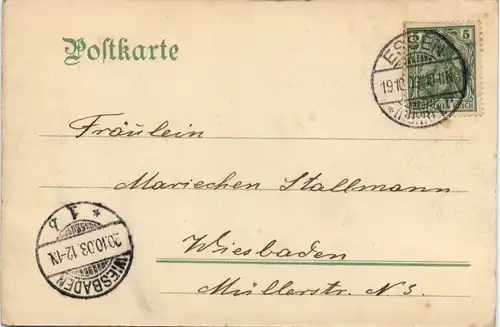 Postkarte
5 5
ESSEN
19.10.03.
REICH
Fräulein
Mariechen Stallmann
Wiesbaden
Müllerstr. N 3.
WIESBADEN
20.10.03. 12-1N.
* 1 b